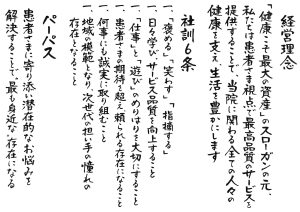 経営理念
「健康こそ最大の資産」のスローガンの元、
私たちは患者さま視点で最高品質のサービスを
提供することで、当院に関わる全ての人々の
健康を支え、生活を豊かにします
社訓6条
一、「褒める」「笑わす」「指摘する」
一、日々学び、サービス品質を向上すること
一、「仕事」と「遊び」のめりはりを大切にすること
一、患者さまの期待を超え頼られる存在になること
一、何事にも誠実に取り組むこと
一、地域の模範となり、次世代の担い手の憧れの
存在となること
パーパス
患者さまに寄り添い潜在的なお悩みを
解決することで、最も身近な存在になる